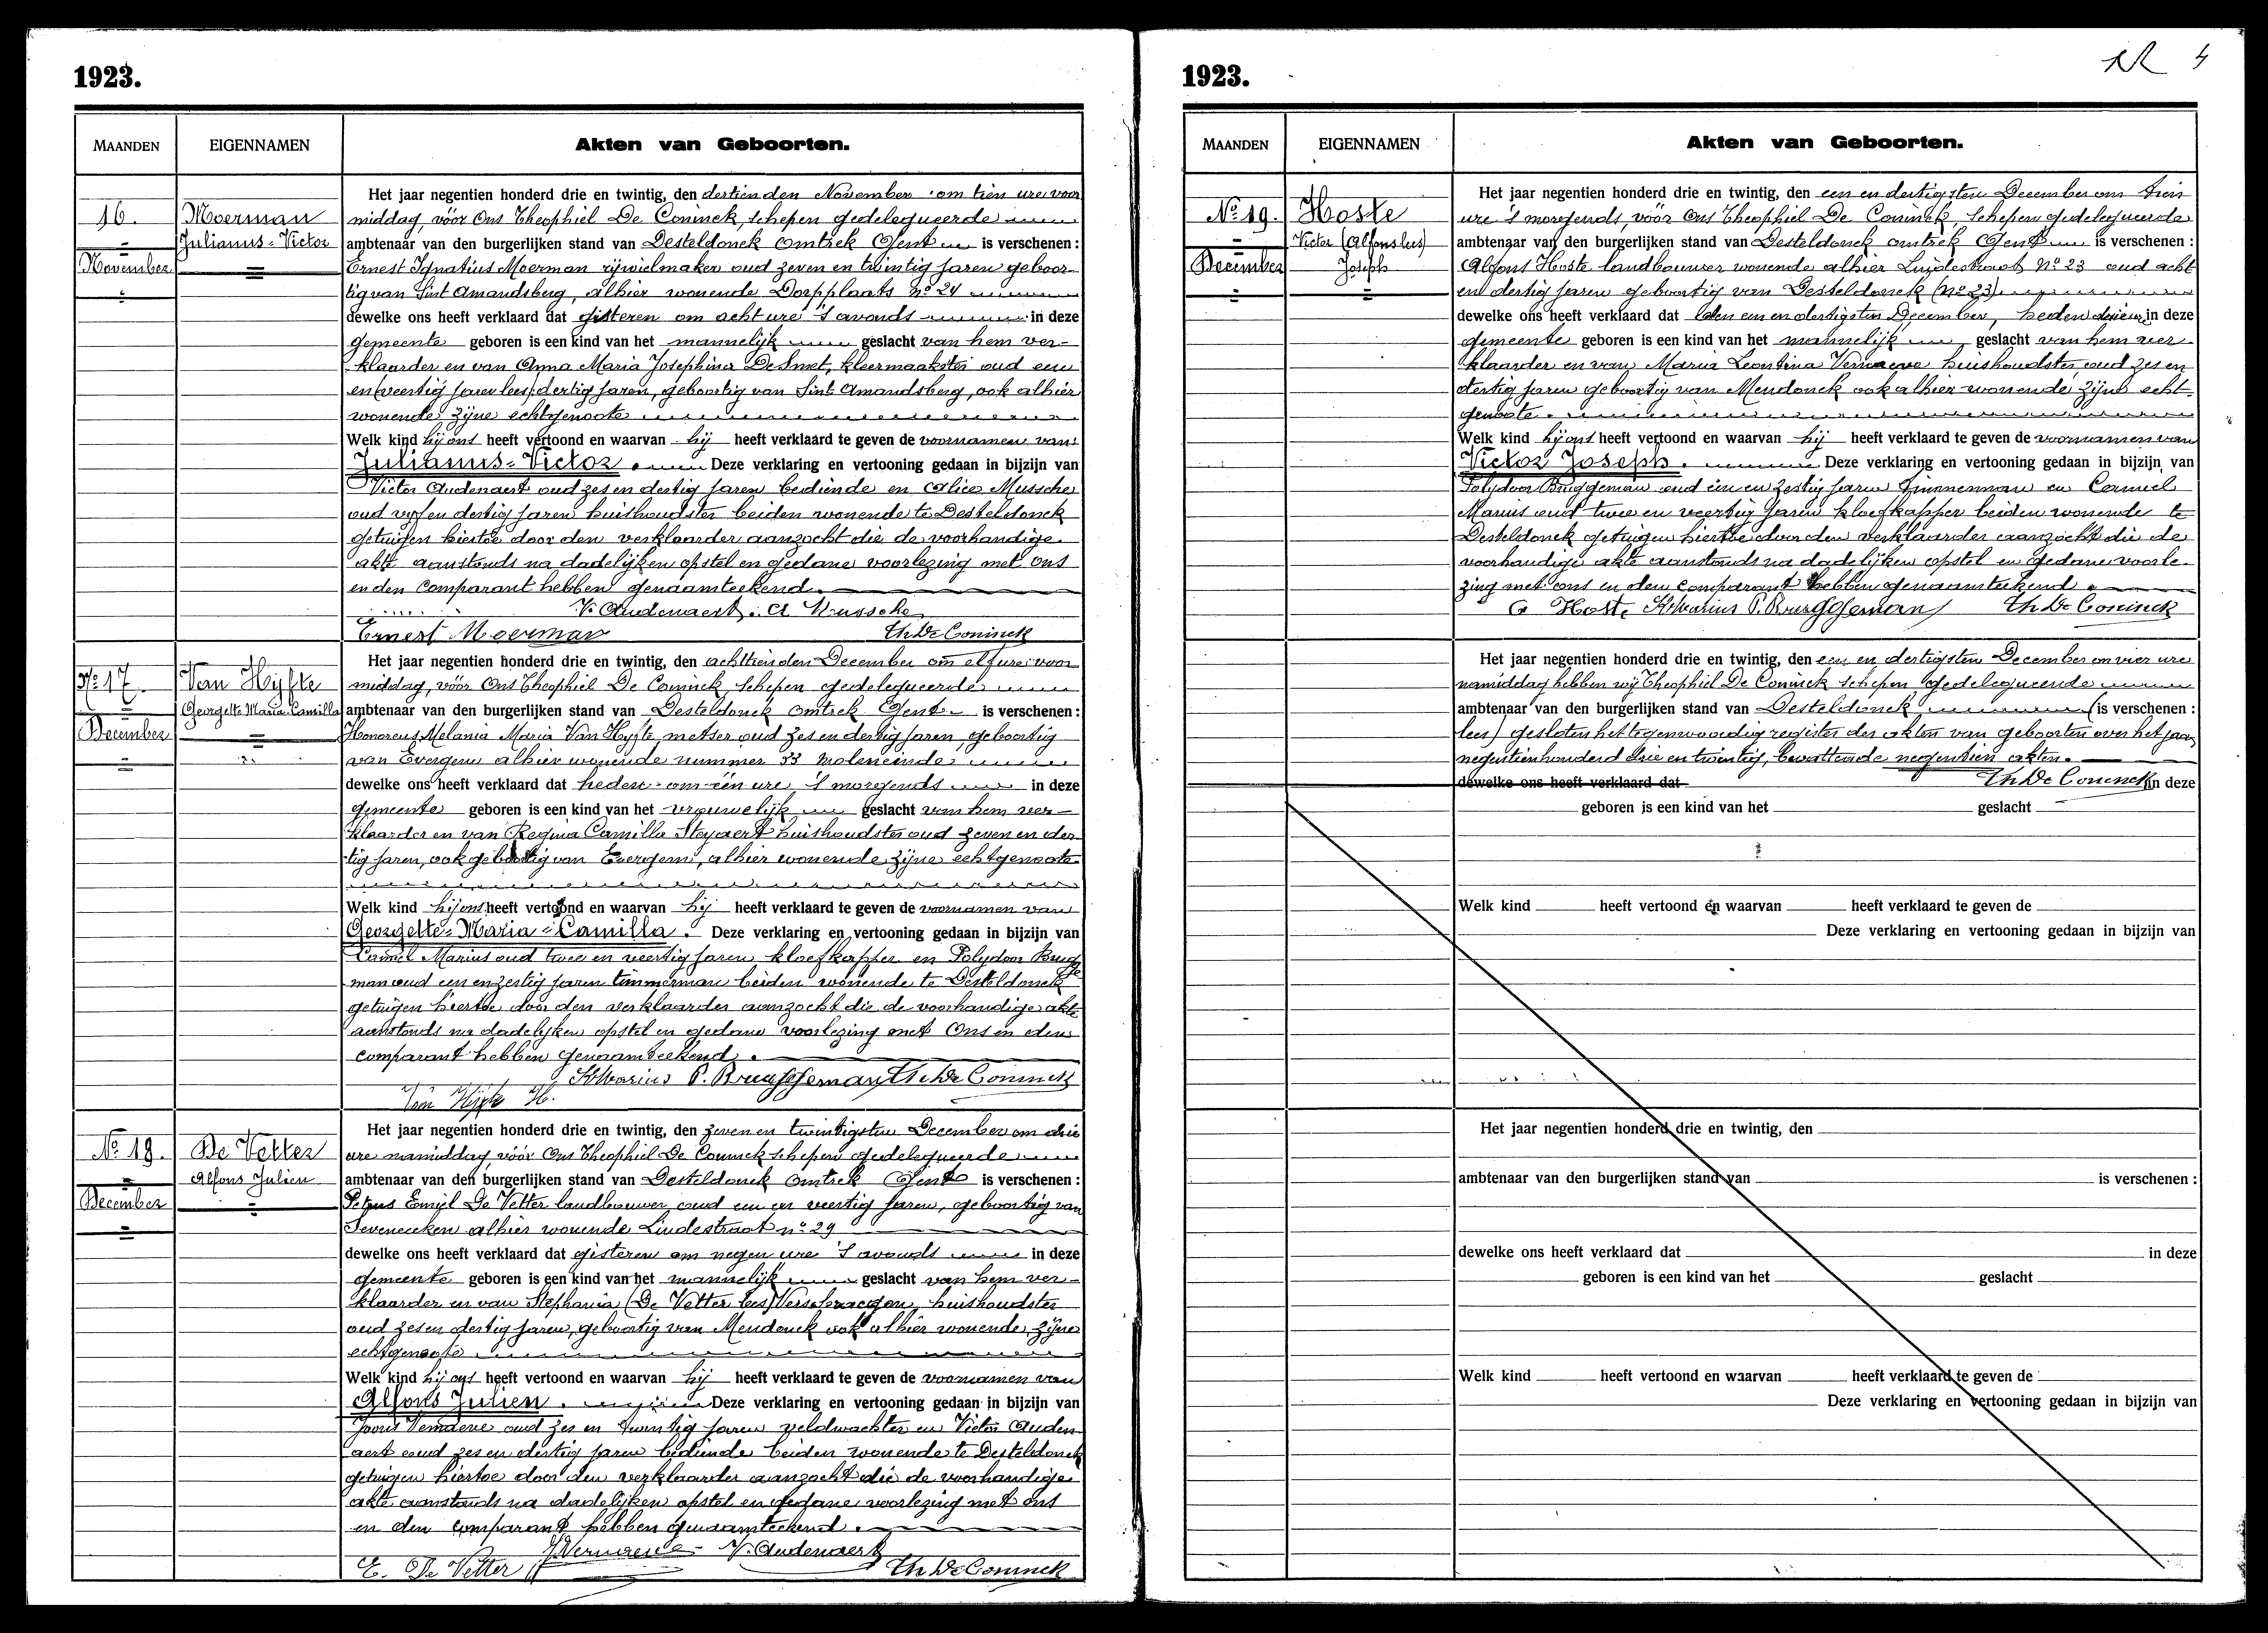 1923.
MAANDEN EIGENNAMEN Akten van Geboorten.
16.
November
Moerman
Julianus-Victor
Het jaar negentien honderd drie en twintig, den dertienden November om tien ure voor
middag, vóór Ons Theophiel De Coninck, schepen gedelegueerde
ambtenaar van den burgerlijken stand van Desteldonck omtrek Gent is verschenen :
Ernest Ignatius Moerman rijwielmaker oud zeven en twintig jaren geboor-
tig van Sint Amandsberg, alhier wonende Dorpplaats no 24
dewelke ons heeft verklaard dat gisteren om acht ure 's avonds in deze
gemeente geboren is een kind van het mannelijk geslacht van hem ver-
klaarder en van Anna Maria Josephina De Smet, kleermaakster oud een
en (veertig jaren lees) dertig jaren, geboortig van Sint Amandsberg, ook alhier
wonende zijne echtgenoote
Welk kind hij ons heeft vertoond en waarvan hij heeft verklaard te geven de voornamen van
Julianus-Victor. Deze verklaring en vertooning gedaan in bijzijn van
Victor Audenaert oud zes en dertig jaren bediende en Alice Mussche
oud vijf en dertig jaren huishoudster beiden wonende te Desteldonck
getuigen hiertoe door den verklaarder aanzocht die de voorhandige
akte aanstonds na dadelijken opstel en gedane voorlezing met ons
en den comparant hebben genaamteekend.
V. Audenaert. A Mussche
Ernest Moerman Th De Coninck
No 17.
December
Van Hyfte
Georgette Maria Camilla
Het jaar negentien honderd drie en twintig, den achttienden December om elf ure voor
middag, vóór Ons Theophiel De Coninck, schepen gedelegueerde
ambtenaar van den burgerlijken stand van Desteldonck omtrek Gent is verschenen :
Honoreus Melania Maria Van Hyfte, metser oud zes en dertig jaren, geboortig
van Evergem alhier wonende nummer 33 Moleneinde
dewelke ons heeft verklaard dat heden om één ure 's morgends in deze
gemeente geboren is een kind van het vrouwelijk geslacht van hem ver-
klaarder en van Regina Camilla Steyaert huishoudster oud zeven en der-
tig jaren, ook geboortig van Evergem, alhier wonende zijne echtgenoote
Welk kind hij ons heeft vertoond en waarvan hij heeft verklaard te geven de voornamen van
Georgette-Maria-Camilla. Deze verklaring en vertooning gedaan in bijzijn van
Camiel Marius oud twee en veertig jaren kloefkapper en Polydoor Brugge
man oud een en zestig jaren timmerman beiden wonende te Desteldonck
getuigen hiertoe door den verklaarder aanzocht die de voorhandige akte
aanstonds na dadelijken opstel en gedane voorlezing met Ons en den
comparant hebben genaamteekend.
Marius P. Bruggeman Th De Coninck
Van Hyfte H.
No 18.
December
De Vetter
Alfons Julien
Het jaar negentien honderd drie en twintig, den zeven en twintigsten December om drie
ure namiddag vóór Ons Theophiel De Coninck schepen gedelegueerde
ambtenaar van den burgerlijken stand van Desteldonck omtrek Gent is verschenen :
Petrus Emiel De Vetter landbouwer oud een en veertig jaren, geboortig van
Seveneecken alhier wonende Lindestraat no 29
dewelke ons heeft verklaard dat gisteren om negen ure 's avonds in deze
gemeente geboren is een kind van het mannelijk geslacht van hem ver-
klaarder en van Stephania (De Vetter lees) Verschraegen, huishoudster
oud zes en dertig jaren, geboortig van Mendonck ook alhier wonende zijne
echtgenoote
Welk kind hij ons heeft vertoond en waarvan hij heeft verklaard te geven de voornamen van
Alfons Julien. Deze verklaring en vertooning gedaan in bijzijn van
Joris Vernaeve oud zes en twintig jaren veldwachter en Victor Auden-
aert oud zes en dertig jaren bediende beiden wonende te Desteldonck
getuigen hiertoe door den verklaarder aanzocht die de voorhandige
akte aanstonds na dadelijken opstel en gedane voorlezing met ons
en den comparant hebben genaamteekend.
J Vernaeve V. Audenaert
E. De Vetter Th De Coninck
1923.
4
MAANDEN EIGENNAMEN Akten van Geboorten.
No 19.
December
Hoste
Victor (Alfons lees)
Joseph
Het jaar negentien honderd drie en twintig, den een en dertigsten December om tien
ure 's morgends, vóór Ons Theophiel De Coninck, schepen gedelegueerde
ambtenaar van den burgerlijken stand van Desteldonck omtrek Gent is verschenen :
Alfons Hoste landbouwer wonende alhier Lindestraat No 23 oud acht
en dertig jaren geboortig van Desteldonck (no 23)
dewelke ons heeft verklaard dat den een en dertigsten December, heden drie ure in deze
gemeente geboren is een kind van het mannelijk geslacht van hem ver-
klaarder en van Maria Leontina Vernaeve huishoudster oud zes en
dertig jaren geboortig van Mendonck ook alhier wonende zijne echt-
genoote.
Welk kind hij ons heeft vertoond en waarvan hij heeft verklaard te geven de voornamen van
Victor Joseph. Deze verklaring en vertooning gedaan in bijzijn van
Polydoor Bruggeman oud een en zestig jaren timmerman en Camiel
Marius oud twee en veertig jaren kloefkapper beiden wonende te
Desteldonck getuigen hiertoe door den verklaarder aanzocht die de
voorhandige akte aanstonds na dadelijken opstel en gedane voorle-
zing met ons en den comparant hebben genaamteekend.
A Hoste Marius P. Bruggeman Th De Coninck
Het jaar negentien honderd drie en twintig, den een en dertigsten December om vier ure
namiddag hebben wij Theophiel De Coninck schepen gedelegueerde
ambtenaar van den burgerlijken stand van Desteldonck (is verschenen :
lees) gesloten het tegenwoordig register der akten van geboorten over het jaar
negentienhonderd drie en twintig, bevattende negentien akten.
dewelke ons heeft verklaard dat Th De Coninck in deze
geboren is een kind van het geslacht
Welk kind heeft vertoond en waarvan heeft verklaard te geven de
Deze verklaring en vertooning gedaan in bijzijn van
Het jaar negentien honderd drie en twintig, den
ambtenaar van den burgerlijken stand van is verschenen :
dewelke ons heeft verklaard dat in deze
geboren is een kind van het geslacht
Welk kind heeft vertoond en waarvan heeft verklaard te geven de
Deze verklaring en vertooning gedaan in bijzijn van